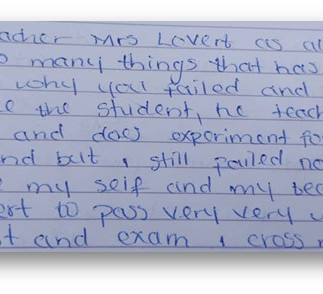 acher Mrs Lovert as al
o many things that has
why you failed and
e the student, he teach
and does experiment fo
nd but, still failed no
my self and my tea
ert to pass very very
t and exam, cross